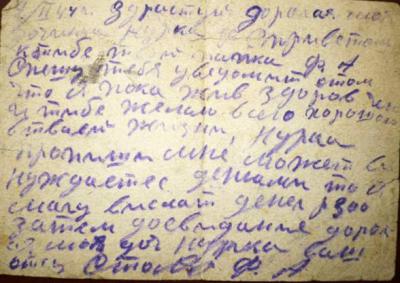 Здраствуй дорогая моя
дочинька Нурка с приветом
к тибе твой папка Ф А
Спешу тебя уведомит о том
что я пока жив здоров чего
и тибе желаю всего хорошого
в твоей жизни, Нурка
пропиши мне может вы
нуждаетес денгами то я
смогу выслат денег р 300
затем досвидание дорог
ая моя доч Нурка ваш
отец Ф. А